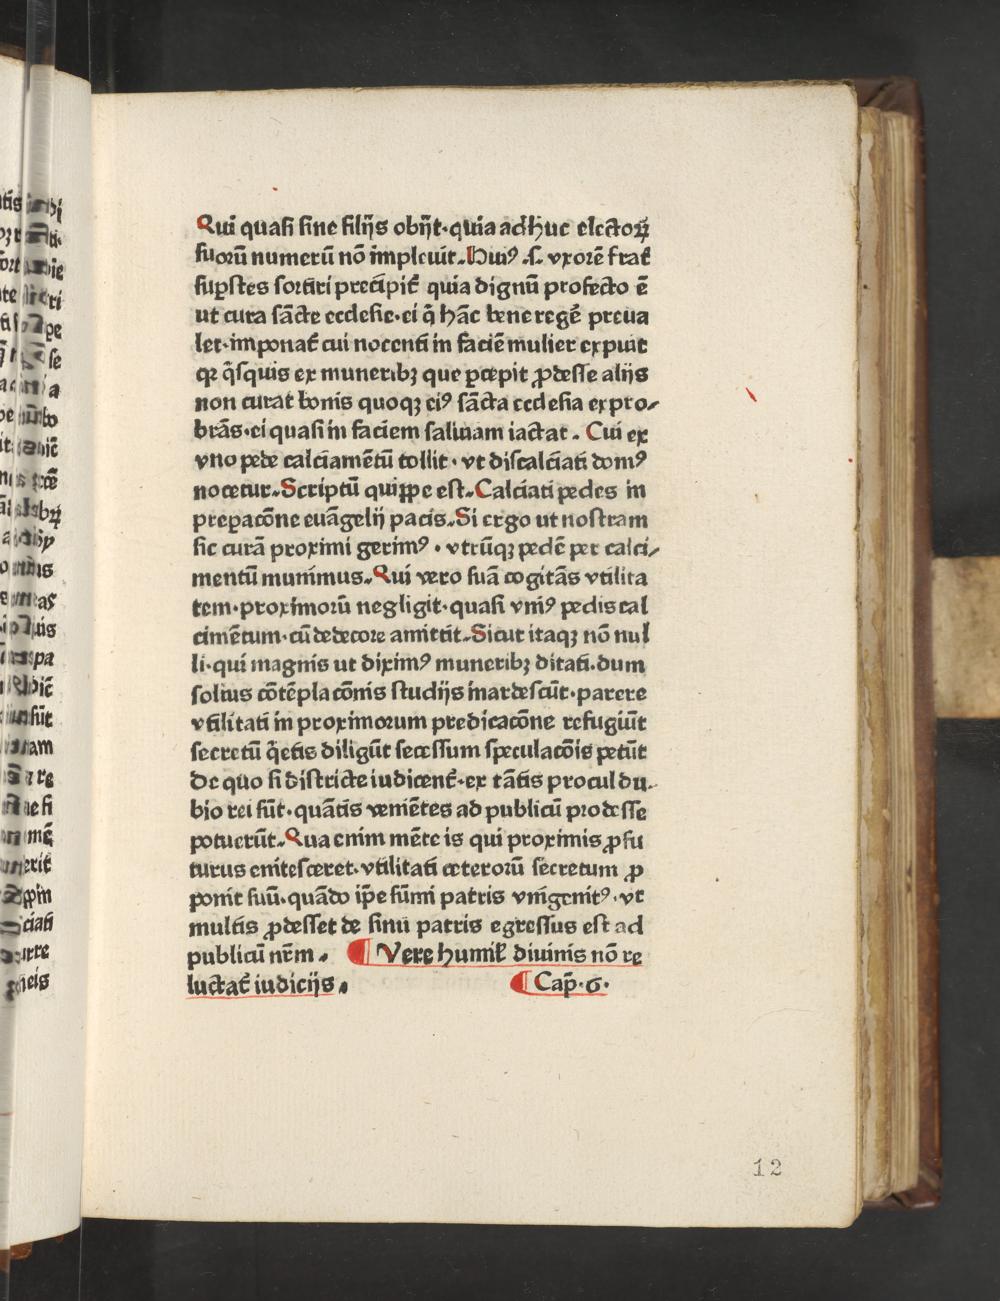 Qui quasi sine filijs obijt·quia adhuc electoꝝ
suorū numerū nō impleuit. Huiꝰ .s. vxorē frat̄
suꝑstes sortiri precīpit̄ quia dignū profecto ē
ut cura sācte ecclesie·ei q̄ hāc bene regē preua
let·imponat̄ cui nocenti in faciē mulier expuit
qꝛ q̄squis ex muneribꝫ que ꝑcepit ꝓdesse alijs
non curat bonis quoqꝫ eiꝰ sācta ecclesia expro/
brās·ei quasi in faciem saliuam iactat. Cui ex
vno pede calciamētū tollit·vt discalciati domꝰ
nocetur. Scriptū quippe est. Calciati pedes in
preparacōne euāgelij pacis. Si ergo ut nostram
sic curā proximi gerimꝰ·vtrūqꝫ pedē per calci/
mentū munimus. Qui vero suā cogitās vtilita
tem·proximorū negligit·quasi vniꝰ pedis cal
cimētum·cū dedecore amittit. Sicut itaqꝫ nō nul
li·qui magnis ut diximꝰ muneribꝫ ditati·dum
solius cōtēplacōnis studijs inardescūt·parere
vtilitati in proximorum predicacōne refugiūt
secretū q̄etis diligūt secessum speculacōis petūt
De quo si districte iudicent̄·ex tātis procul du.
bio rei sūt·quātis veniētes ad publicū prodesse
potuerūt. Qua enim mēte is qui proximis ꝓfu
turus enitesceret·vtilitati ceterorū secretum ꝓ
ponit suū·quādo ip̄e sūmi patris vnigenitꝰ·vt
multis ꝓdesset de sinu patris egressus est ad
publicū nr̄m. ¶ Vere humil̄ diuinis nō re
luctat̄ iudicijs. ¶ Cap̄·6·
12